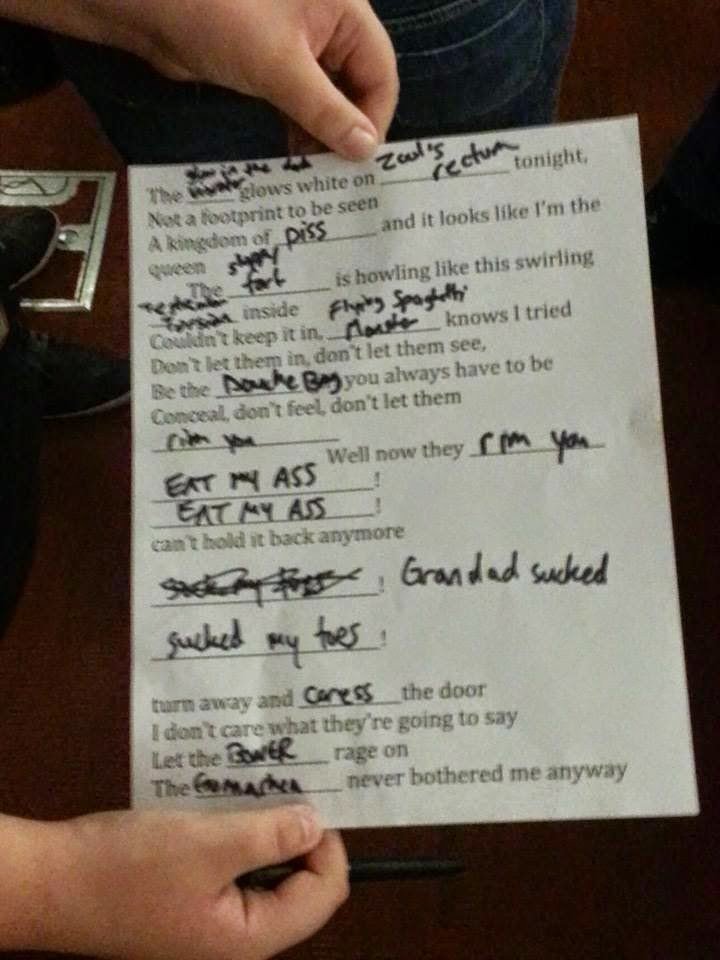 glow in the dark
Zaul's
The glows white on rectum tonight,
Not a footprint to be seen
A kingdom of piss and it looks like I'm the
queen
The fart is howling like this swirling
inside Flying Spaghetti
Couldn't keep it in, Monster knows I tried
Don't let them in, don't let them see,
Be the Douche Bag you always have to be
Conceal, don't feel, don't let them
rim you
Well now they rim you
EAT MY ASS !
EAT MY ASS !
can't hold it back anymore
! Grandad sucked
sucked my toes !
turn away and caress the door
I don't care what they're going to say
Let the BOWER rage on
The never bothered me anyway